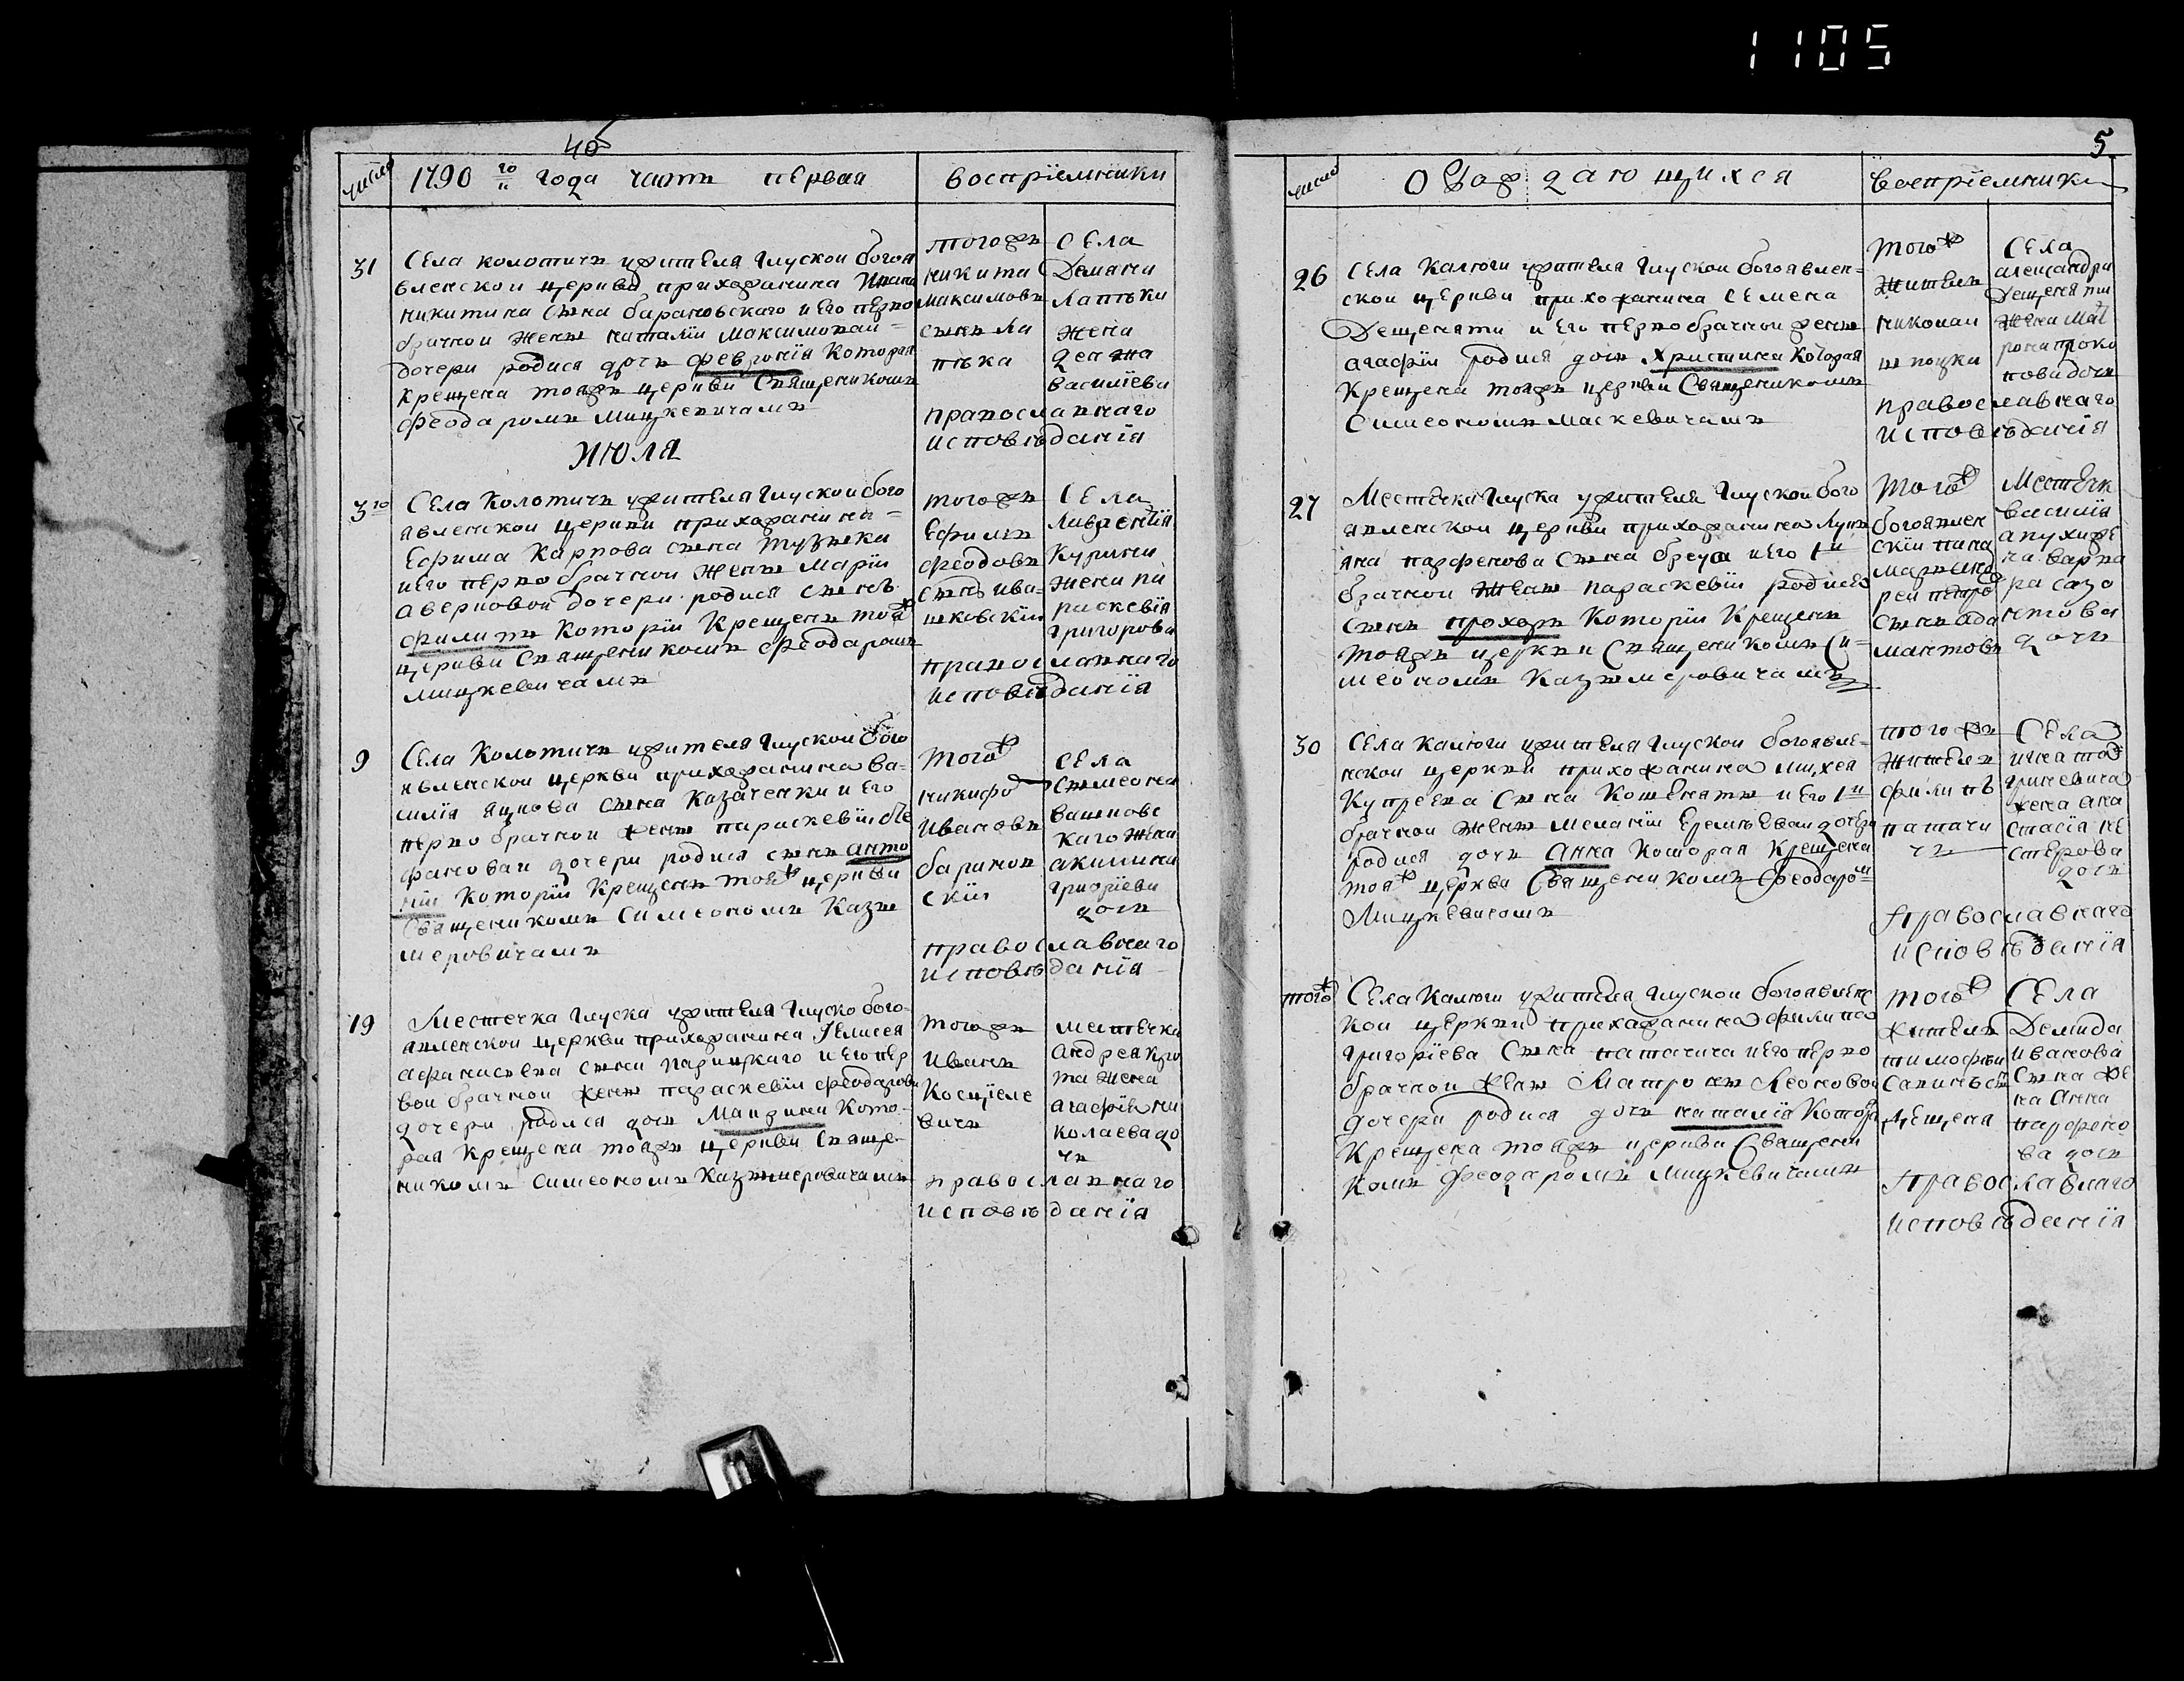 1105
числа
1790 го года часть первая
восприемники
31
Села колотичъ жителя глуской богоя
вленской церкви прихожанина Ивана
никитина сына барановскаго и его перво
брачной жены наталїи максимовай
дочери родися дочь февронїя которая
крещена тояжъ церкви Священикомъ
феодаромъ мицкевичамъ
тогожъ
никита
максимовъ
сынъ ла
пѣка
Села
Демяни
лапѣки
жена
василїева
православнаго
исповѣданїя
Июля
3го
Села Колотичъ жителя глуской бого
явленской церкви прихожанина
Ефима Карпова сына
иего первобрачной жены марїи
аверковой дочери родися сынъ
филипъ Которїи Крещенъ тояж
церкви Священикомъ феодаромъ
мицкевичамъ
тогожъ
Ефимъ
феодовъ
сынъ ива
шковскїи
Села
лаврентїя
курини
жена па
раскевїя
григорова
православнаго
исповѣданїя
9
Села Колотичъ жителя глуской бого
явленской церкви прихожанина ва
силїя яцкова сына Казаченки и его
первобрачной жены параскевїи сте
фановай дочери родися сынъ анто
нїи Которїи Крещенъ тояж церкви
Священикомъ симеономъ Казы
меровичамъ
тогож
никифо
Ивановъ
баранов
скїи
села
сымеона
вашковс
каго жена
акилина
григорїева
дочъ
православнаго
исповѣданїя
19
Местечка глуска жителя глуско бого
явленской церкви прихожанина Гелисея
афанасьева сына парицкаго и его пер
вой брачной жены параскевїи феодарови
дочери родися дочъ Мавдина Кото
рая Крещена тояжъ церкви Свяще
никомъ симеономъ Казымеровичамъ
тогожъ
Иванъ
Косцїеле
вичъ
местечка
андрея
та жена
агафїя ни
колаева до
чъ
православнаго
исповѣданїя
5
число
О Раждающихся
восприемники
26
Села Калюги жителя глуской богоявлен
ской церкви прихожанина семена
Дещеняти и его первобрачной жены
агафїи родися дочъ христина которая
Крещена тояжъ церкви Священикомъ
Симеономъ маскевичамъ
тогож
жителъ
николаи
шпоцки
Села
александра
Дещеняти
жена мат
рона проко
пова дочъ
православнаго
исповѣданїя
27
Местечка глуска жителя глуской бого
явленской церкви прихожанина Лукь
яна парфенова сына бреуса иего 1й
брачной жены параскевїи родися
сынъ прохоръ Которїи Крещенъ
тояжъ церкви Священикомъ Си
меономъ Казымеровичамъ
тогож
богоявлен
скїи
рей петро
сынъ ада
мантовъ
Местечк
василїя
апухифе
ча варва
ра сазо
нтова
дочъ
30
Села Калюги жителя глуской богоявле
нской церкви прихожанина михея
Купреева сына Кошеняты и его 1й
брачной жены меланїи Еремѣевай дочери
родися дочъ анна Которая Крещена
тояж церкви Священикомъ феодаром
Мицкевичомъ
тогожъ
жителъ
филипъ
патачи
чъ
Села
ена ана
стасїя не
стерова
дочъ
православнаго
исповѣданїя
тогож
Села Калюги жителя глуской богоявленс
кой церкви прихажанина филипа
григорїева сына патачича иего перво
брачной жены Матроны Леоновой
дочери родися дочъ наталїя Котора
Крещена тояжъ церкви Священи
комъ феодаромъ мицкевичамъ
тогож
жителъ
тимофѣи
Сапинъ сы
Дещеня
Села
Демида
Иванова
сына же
на анна
парфено
ва дочъ
православнаго
исповѣданїя